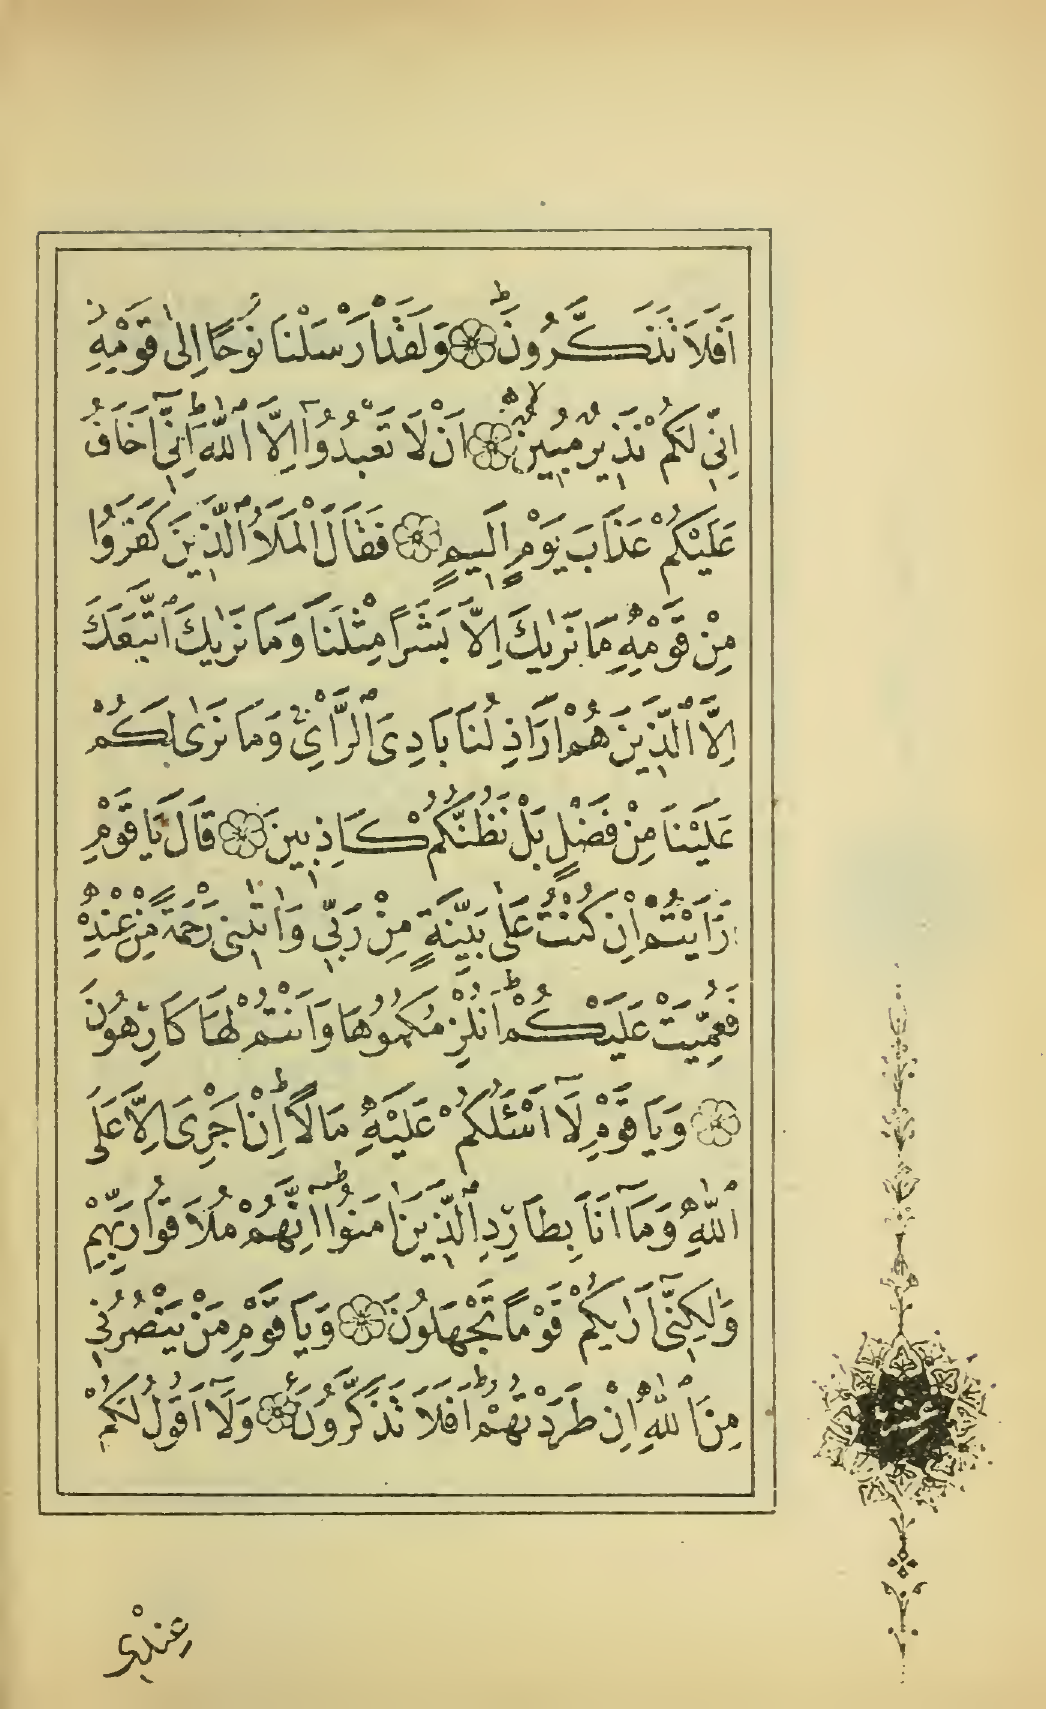 اَفَلَا تَذَكَّرُونَ ۞ وَلَقَدْ اَرْسَلْنَا نُوحًا اِلٰى قَوْمِهٖ
اِنّٖى لَكُمْ نَذٖيرٌ مُبٖينٌ ۞ اَنْ لَا تَعْبُدُوٓا اِلَّا ٱللّٰهَ اِنّٖٓى اَخَافُ
عَلَيْكُمْ عَذَابَ يَوْمٍ اَلٖيمٍ ۞ فَقَالَ الْمَلَاُ ٱلَّذٖينَ كَفَرُوا
مِنْ قَوْمِهٖ مَا نَرٰيكَ اِلَّا بَشَرًا مِثْلَنَا وَمَا نَرٰيكَ ٱتَّبَعَكَ
اِلَّا ٱلَّذٖينَ هُمْ اَرَاذِلُنَا بَادِىَ ٱلرَّاْىِ وَمَا نَرٰى لَكُمْ
عَلَيْنَا مِنْ فَضْلٍ بَلْ نَظُنُّكُمْ كَاذِبٖينَ ۞ قَالَ يَا قَوْمِ
اَرَاَيْتُمْ اِنْ كُنْتُ عَلٰى بَيِّنَةٍ مِنْ رَبّٖى وَاٰتٰينٖى رَحْمَةً مِنْ عِنْدِهٖ
فَعُمِّيَتْ عَلَيْكُمْ اَنُلْزِمُكُمُوهَا وَاَنْتُمْ لَهَا كَارِهُونَ
۞ وَيَا قَوْمِ لَٓا اَسْـَٔلُكُمْ عَلَيْهِ مَالًا اِنْ اَجْرِىَ اِلَّا عَلَى
ٱللّٰهِ وَمَٓا اَنَا بِطَارِدِ ٱلَّذٖينَ اٰمَنُوا اِنَّهُمْ مُلَاقُوا رَبِّهِمْ
وَلٰكِنّٖٓى اَرٰيكُمْ قَوْمًا تَجْهَلُونَ ۞ وَيَا قَوْمِ مَنْ يَنْصُرُنٖى
مِنَ ٱللّٰهِ اِنْ طَرَدْتُهُمْ اَفَلَا تَذَكَّرُونَ ۞ وَلَٓا اَقُولُ لَكُمْ
عِنْدٖى